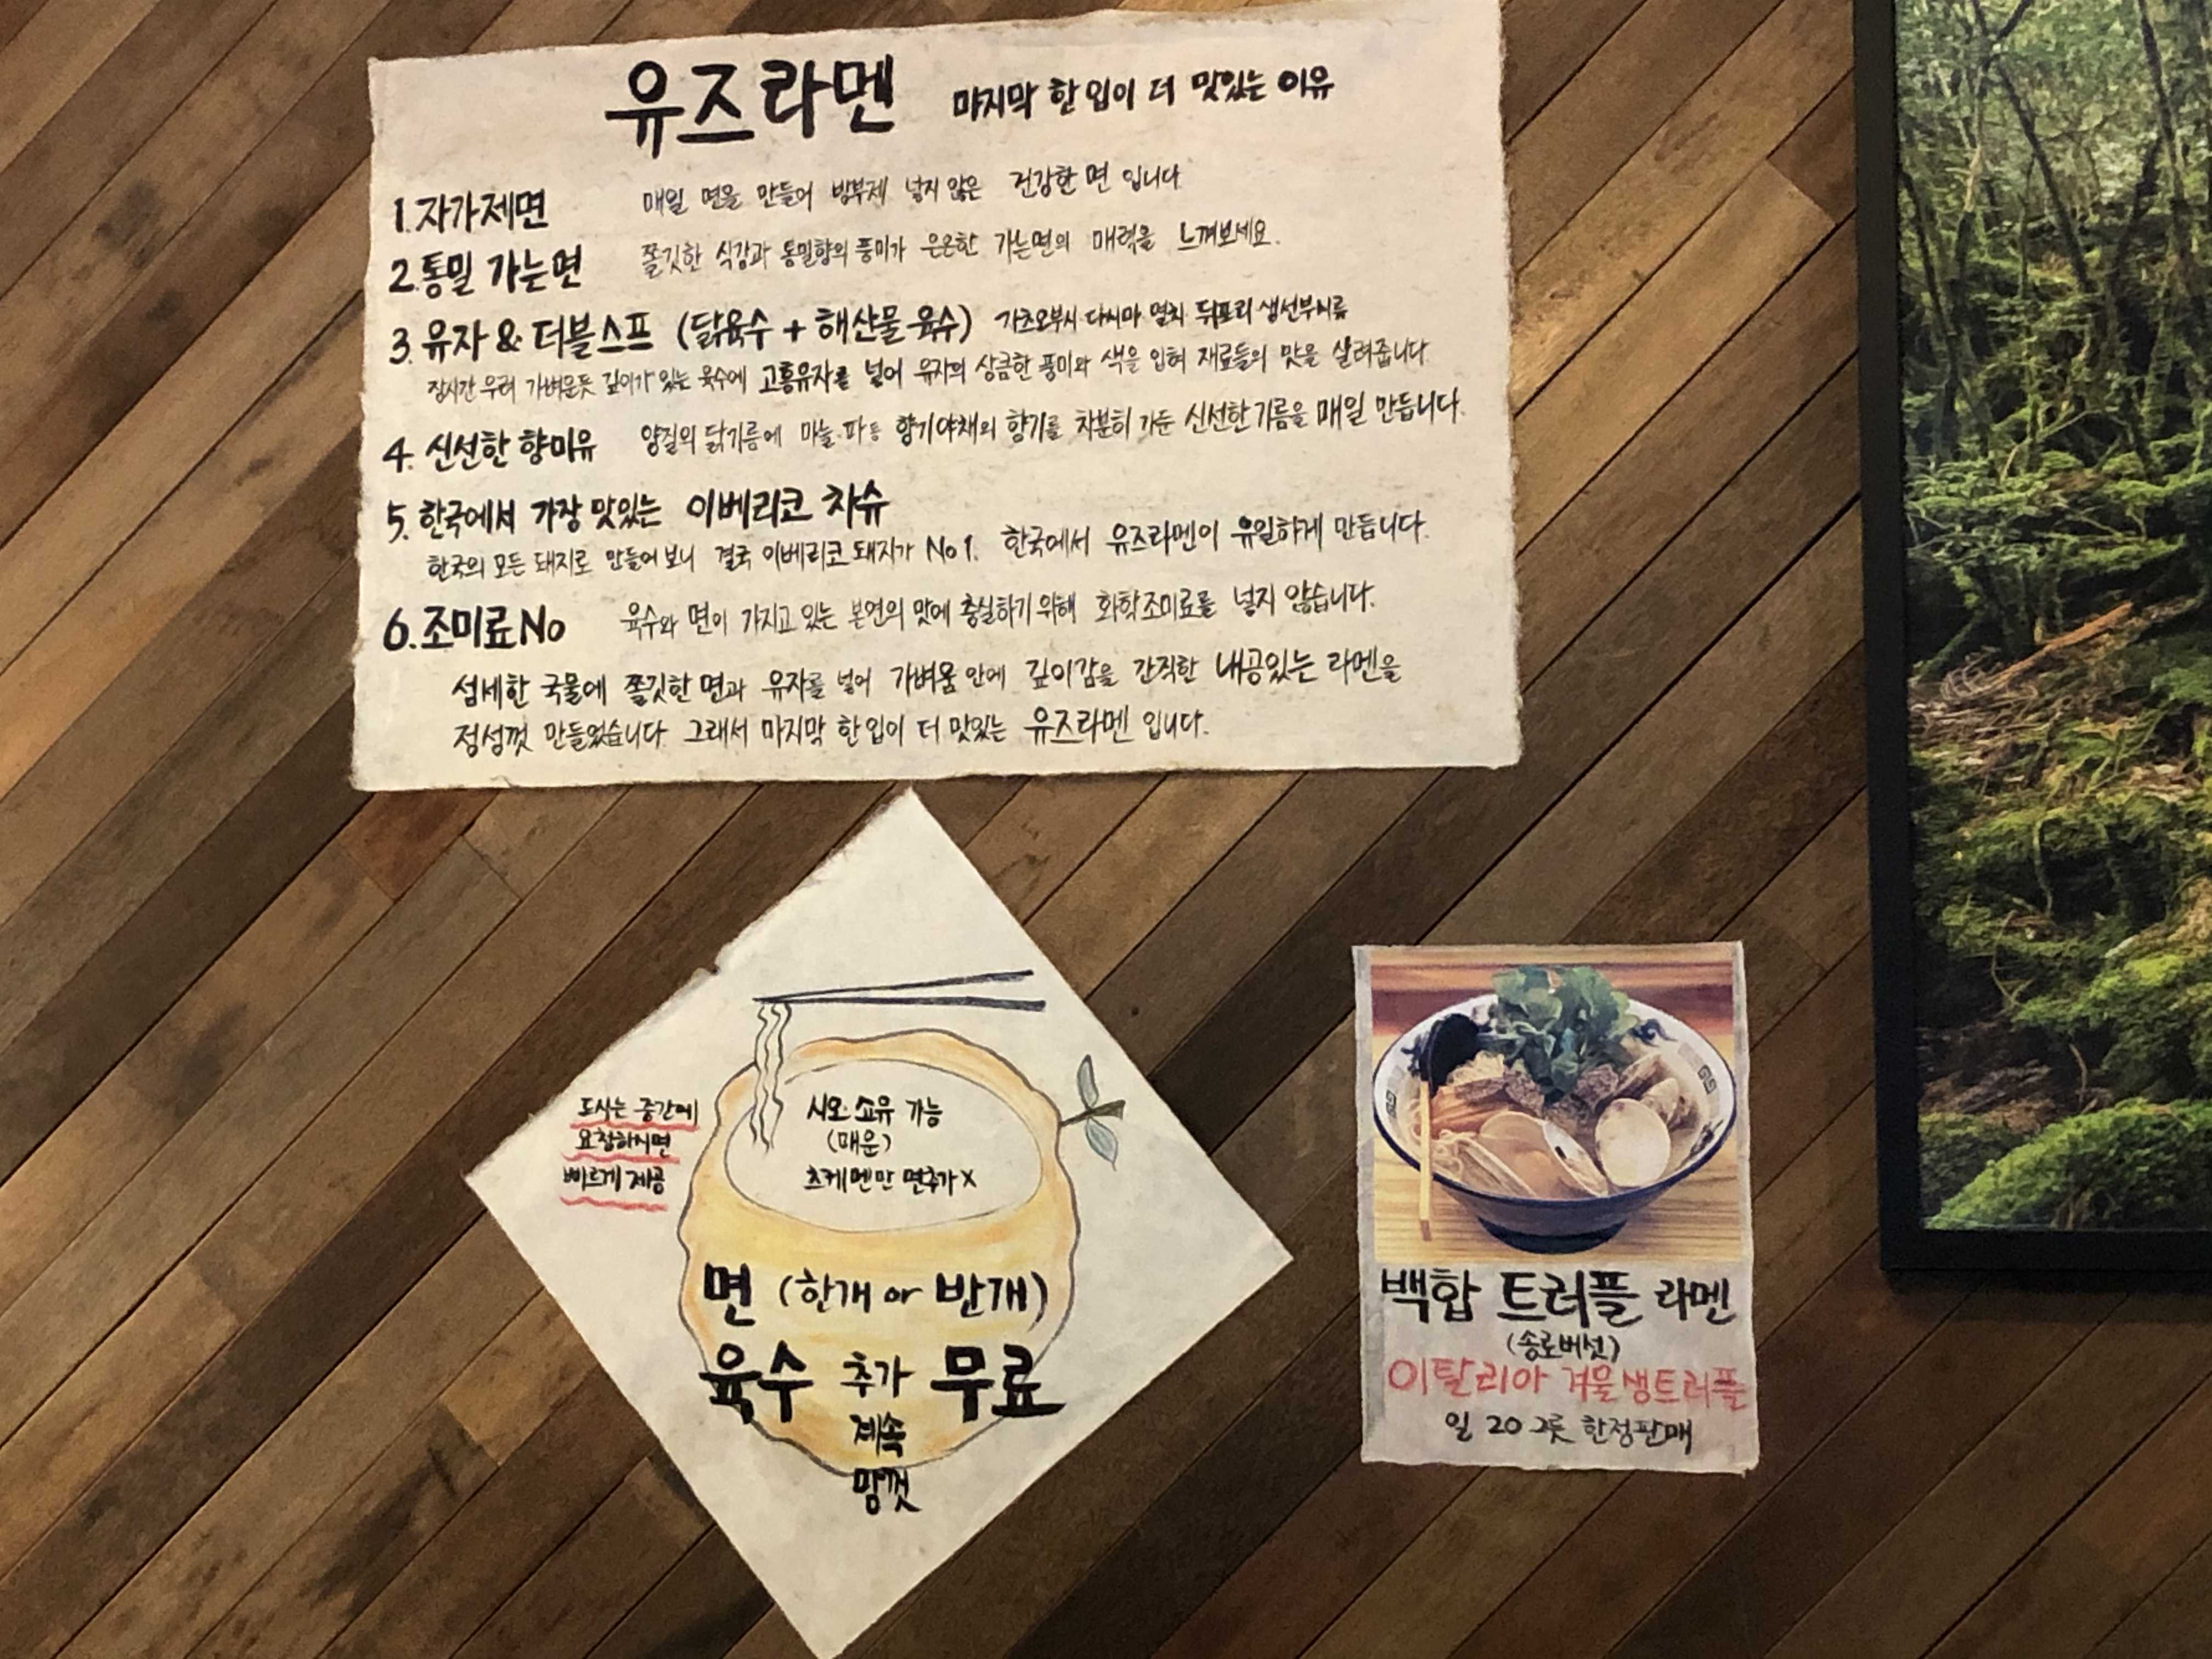 유즈라멘 마지막 한입이 더 맛있는 이유
1. 자가제면 매일 면을 만들어 방부제 넣지 않은 건강한 면 입니다
2. 통밀 가는면 쫄깃한 식감과 통밀향의 풍미가 은은한 가는면의 매력을 느껴보세요.
3. 유자 & 더블스프 (닭육수 + 해산물 육수) 가츠오부시 다시마 멸치 뒤포리 생선부시류
장시간 우려 가벼운듯 깊이가 있는 육수에 고흥유자를 넣어 유자의 상큼한 풍미와 색을 입혀 재료들의 맛을 살려줍니다
4. 신선한 향미유 양질의 닭기름에 마늘.파등 향기야채의 향기를 차분히 가둔 신선한 기름을 매일 만듭니다.
5. 한국에서 가장 맛있는 이베리코 차슈
한국의 모든 돼지로 만들어 보니 결국 이베리코 돼지가 No 1. 한국에서 유즈라멘이 유일하게 만듭니다.
6. 조미료 No 육수와 면이 가지고 있는 본연의 맛에 충실하기 위해 화학조미료를 넣지 않습니다.
섬세한 국물에 쫄깃한 면과 유자를 넣어 가벼움 안에 깊이감을 간직한 내공있는 라멘을
정성껏 만들었습니다. 그래서 마지막 한입이 더 맛있는 유즈라멘 입니다.
도시는 중간에
요청하시면
빠르게 제공
시오 쇼유 가능
(매운)
츠케멘만 면추가 X
면 (한개 or 반개)
육수 추가 무료
계속
맘껏
백합 트러플 라멘
(송로버섯)
이탈리아 겨울생트러플
일 20그릇 한정판매